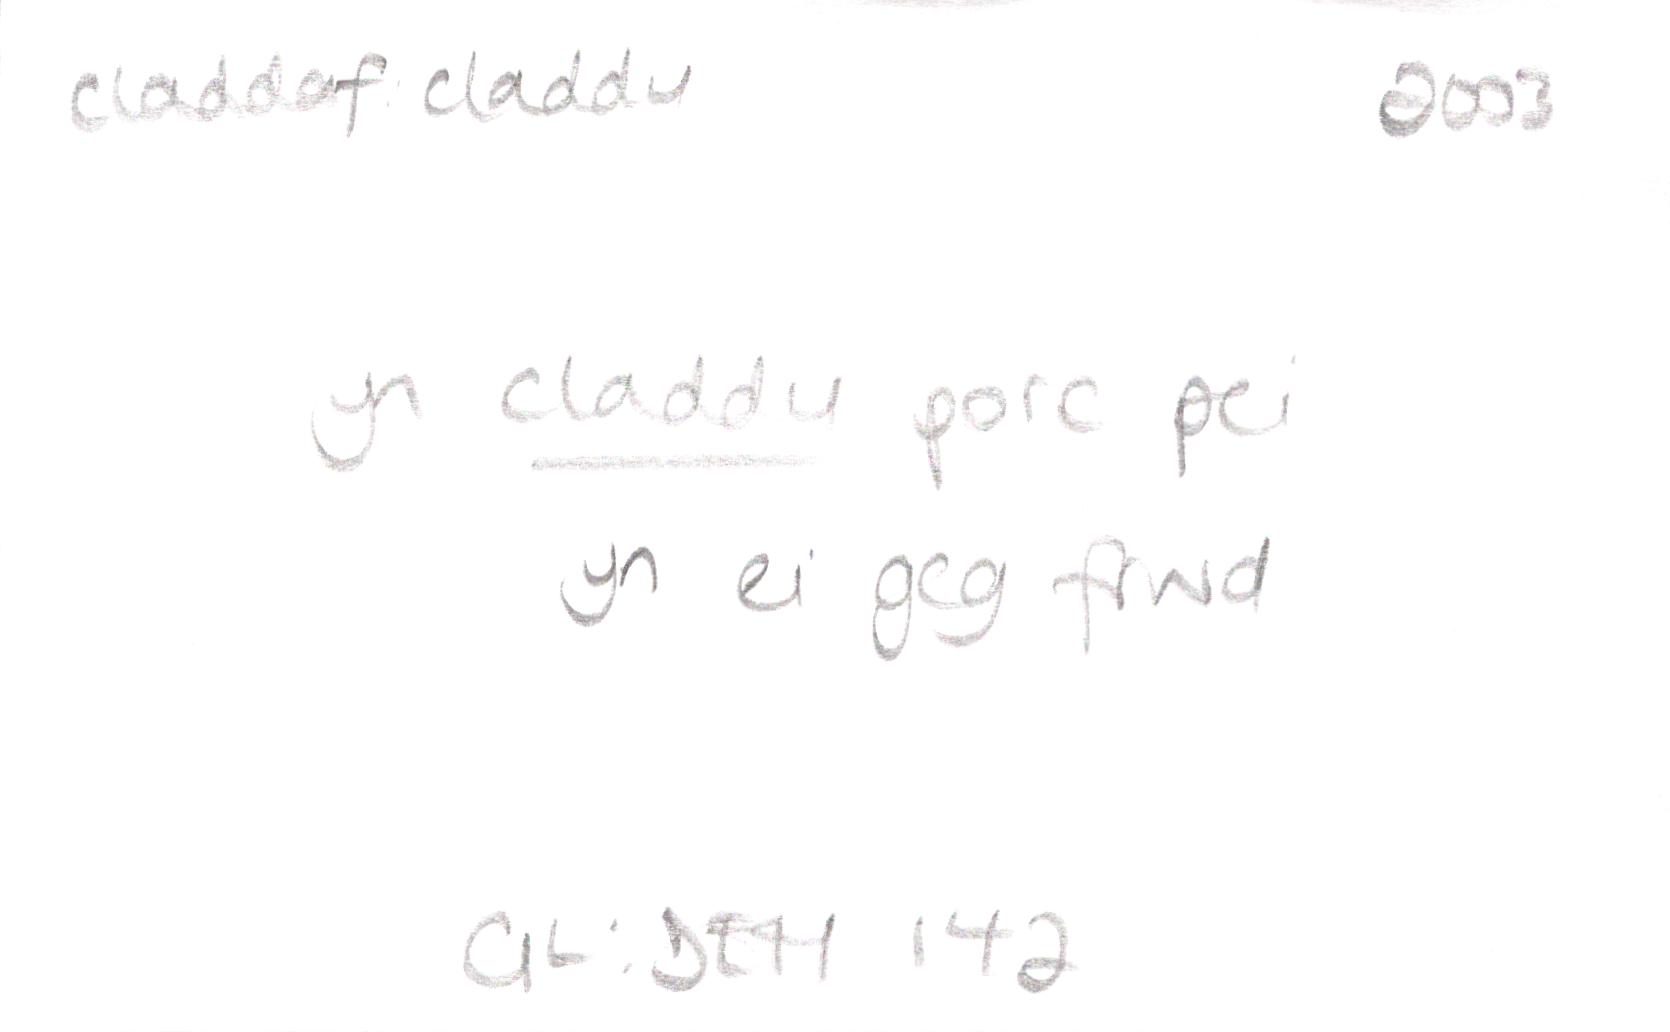 claddaf: claddu 2003
yn claddu porc pei
yn ei geg frwd
GL: DEH 142